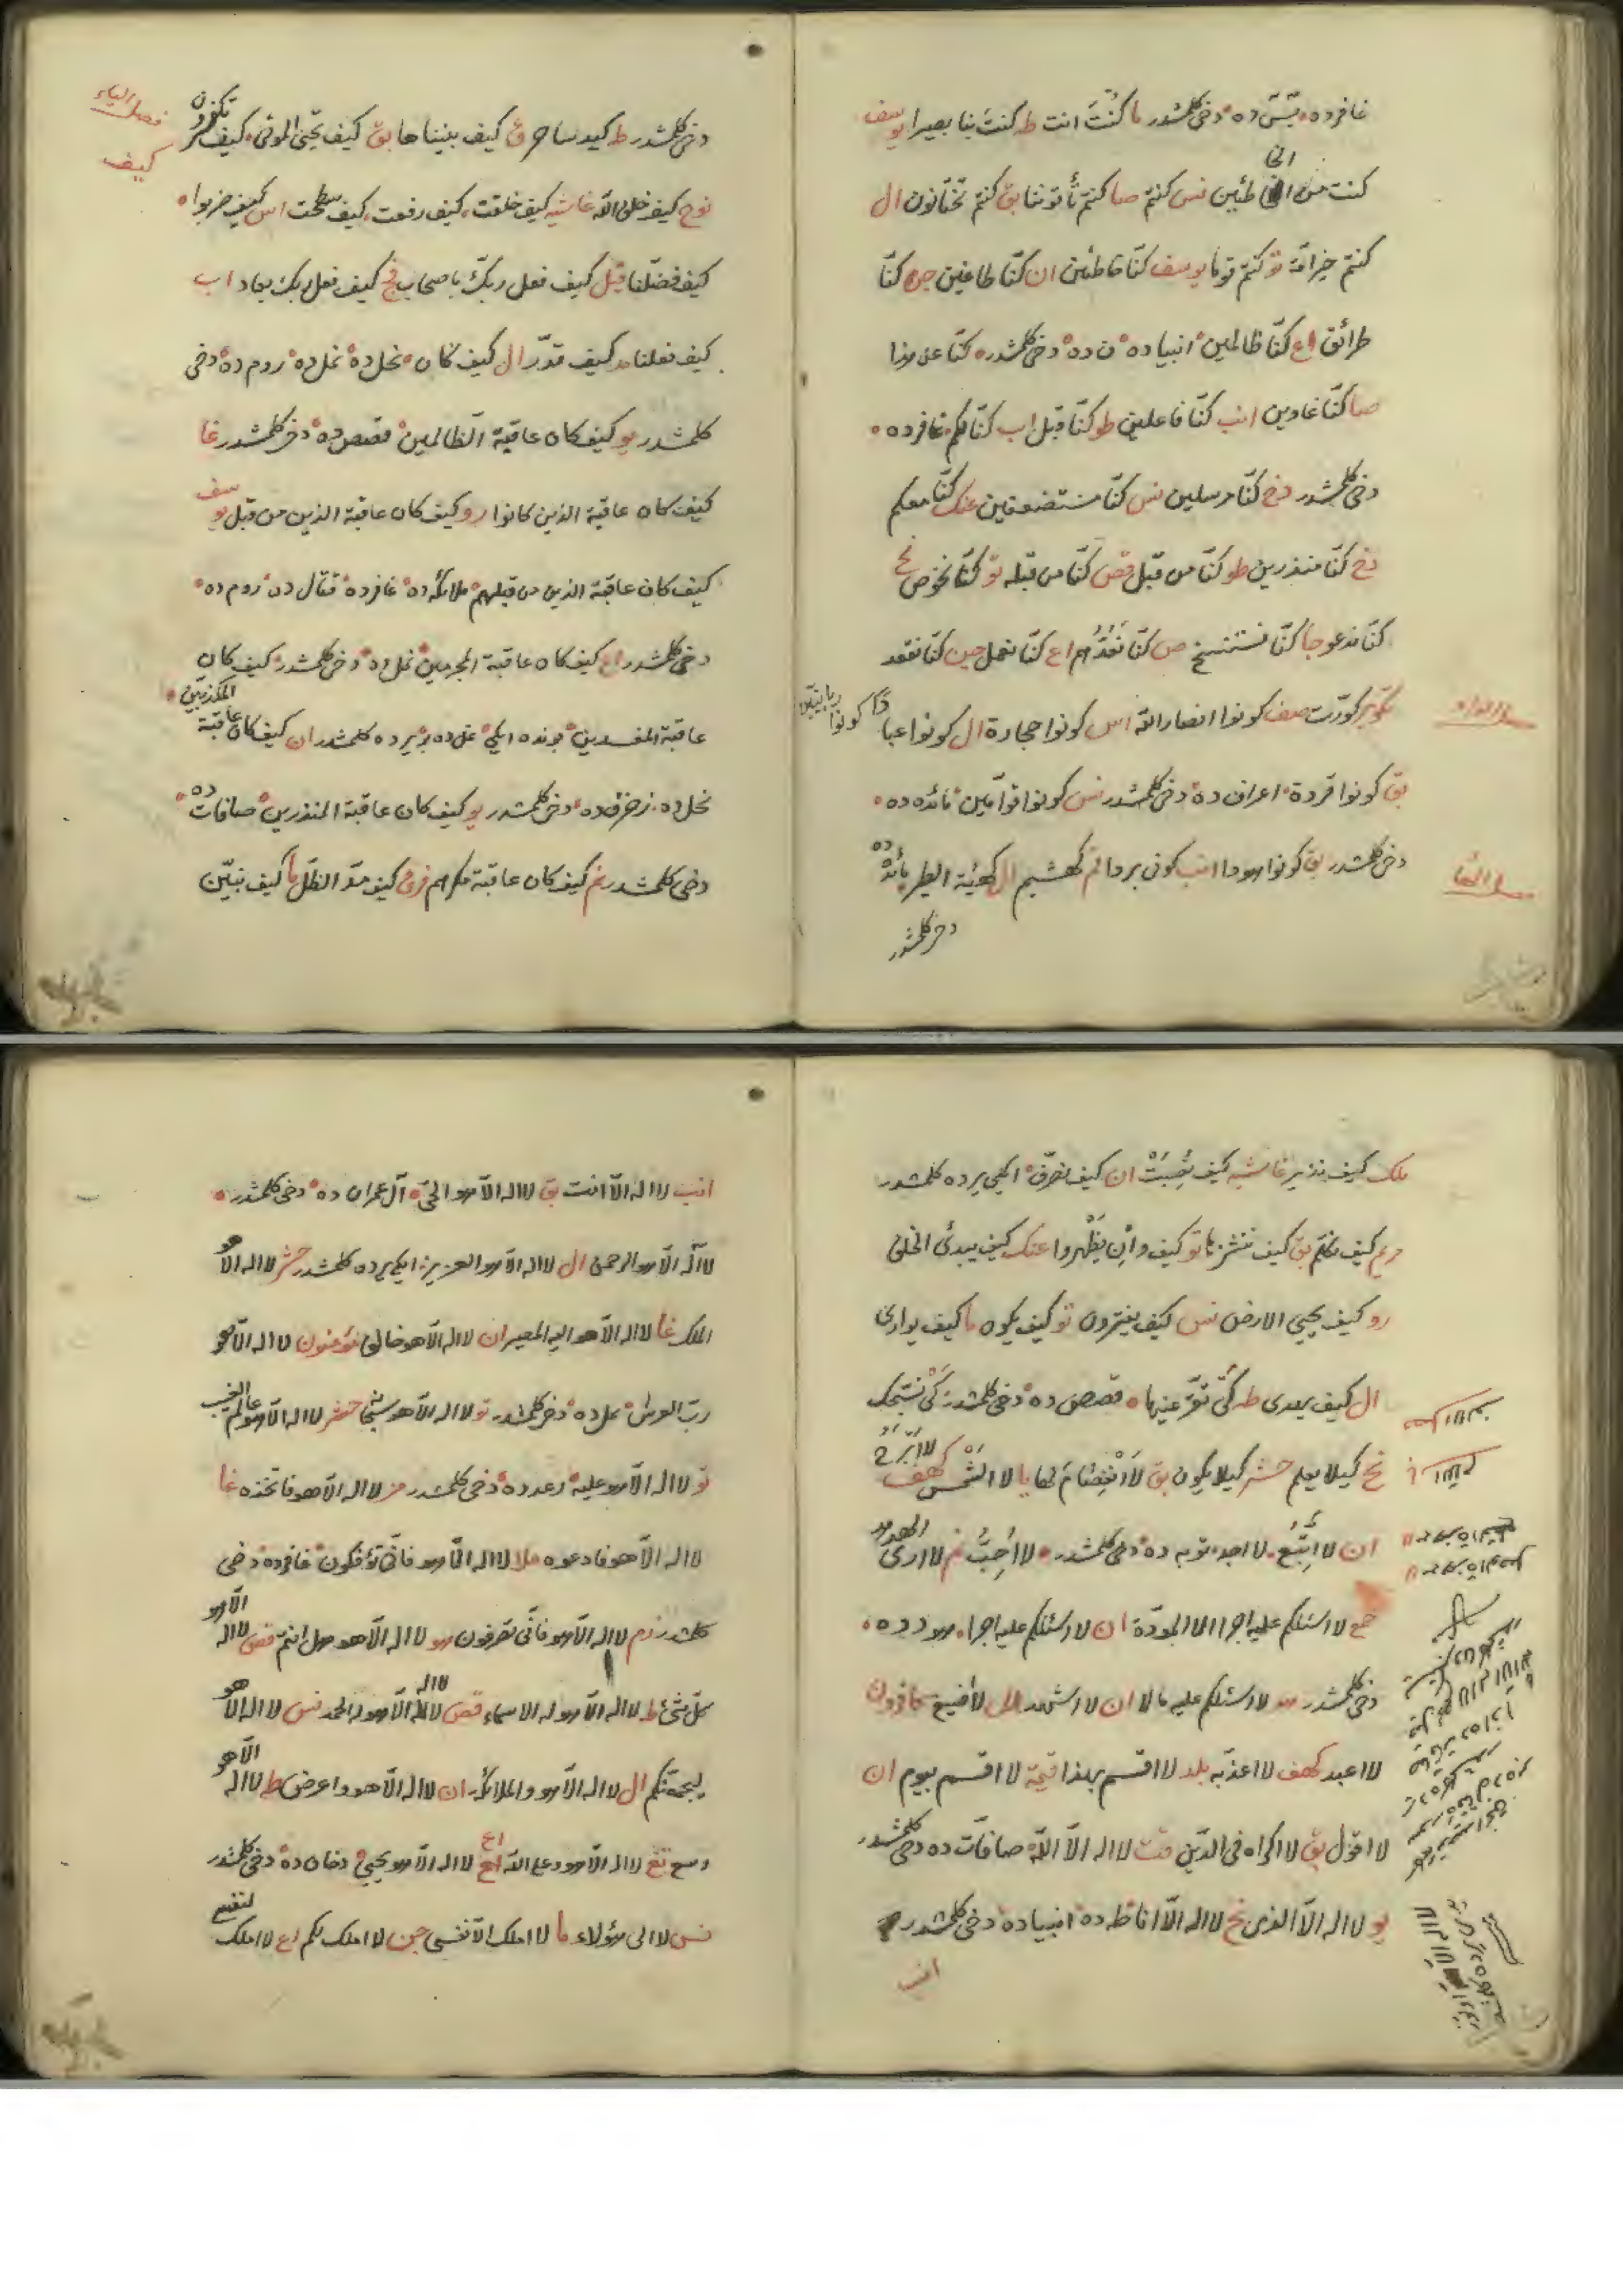 غافرده ٥ دخی کلمشدر ما کُنْتَ انت طه کنتَ بنا بصیرا یوسف
کنت من الخاطئین نس کنتم صا کنتم تأتوننا بق کنتم تختانون ال
کنتم خیر امّة تو کنتم قوما یوسف کنّا خاطئین ان کنّا طاغین جن کنّا
طرائق اع کنّا ظالمین ٥ انبیاده ٥ ن ده ٥ دخی کلمشدر ٥ کنّا عن هذا
صا کنّا غاوین انب کنّا فاعلین طو کنّا قبل اب کنّا لکم ٥ غافرده ٥
دخی کلمشدر دخ کنّا مرسلین نس کنّا مستضعفین عنک کنّا معکم
دخ کنّا منذرین طو کنّا من قبل قص کنّا من قبله تو کنّا نخوض نح
کنّا ندعو جا کنّا نستنسخ ص کنّا نَعُدُّهم اع کنّا نعمل جن کنّا نقعد
تکویر کورّت صف کونوا انصار الله اس کونوا حجارة ال کونوا عبادا
کونوا ربانیّن
بق کونوا قردة ٥ اعراف ده ٥ دخی کلمشدر نس کونوا قوّامین ٥ مائده ده ٥
دخی کلمشدر بق کونوا هودا انب کونی بردا قم کهشیم ال کهیئة الطیر مائده ده
دخی کلمشدر
فصل الیاء
کیف
دخی کلمشدر طه کید ساحر ق کیف بنیناها بق کیف تحیی الموتی ٥ کیف تکفرون
نوح کیف خلق الله غاشیه کیف خلقت ٥ کیف رفعت ٥ کیف سطحت اس کیف ضربوا ٥
کیف فضّلنا فیل کیف فعل ربّک باصحاب فج کیف فعل ربک بعاد اب
کیف فعلنا مد کیف قدّر ال کیف کان ٥ نحل ده ٥ نمل ده ٥ روم ده ٥ دخی
کلمشدر یو کیف کان عاقبة الظالمین ٥ قصص ده ٥ دخی کلمشدر غا
کیف کان عاقبة الذین کانوا رو کیف کان عاقبة الذین من قبل یوسف
کیف کان عاقبة الذین من قبلهم ٥ ملائکه ده ٥ غافرده ٥ قتال ده ٥ روم ده ٥
دخی کلمشدر اع کیف کان عاقبة المجرمین ٥ نمل ده ٥ دخی کلمشدر ٥ کیف کان
عاقبة المفسدین ٥ بونده ایکی ٥ نمل ده بر یرده کلمشدر ان کیف کان عاقبة المکذبین ٥
نحل ده ٥ زخرف ده ٥ دخی کلمشدر یو کیف کان عاقبة المنذرین ٥ صافات ده ٥
دخی کلمشدر نم کیف کان عاقبة مکرهم فرق کیف مدّ الظلّ ما کیف نبیّن
ملک کیف نذیر غاشیه کیف نُصِبَتْ ان کیف نصرّف ٥ ایکی یرده کلمشدر
مریم کیف نکلّم بق کیف ننشزها تو کیف وان یَظْهروا عنک کیف یبدئ الخلق
رو کیف یحیی الارض نس کیف یفترون تو کیف یکون ما کیف یواری
ال کیف یهدی طه کَیْ تقرّ عینها ٥ قصص ده ٥ دخی کلمشدر ٥ کَیْ نسبّحک
نح کیلا یعلم حشر کیلا یکون بق لَا انْفِصَامَ لها یا لا الشَّمْسُ کهف لا اَبْرَحُ
ان لا اَتَّبِعُ ٥ لا اجد ٥ توبه ده ٥ دخی کلمشدر ٥ لا اُحِبُّ نم لا اری الهدهد
حمع لا اسئلکم علیه اجرا الا المودّة ان لا اسئلکم علیه اجرا ٥ هود ده ٥
دخی کلمشدر هد لا اسئلکم علیه مالا ان لا اشهد ال لا اضیع کافرون
لا اعبد کهف لا اعذّبه بلد لا اقسم بهذا قیمة لا اقسم بیوم ان
لا اقول بق لا اکراه فی الدّین قت لا اله الاّ الله ٥ صافّات ده دخی کلمشدر
یو لا اله الاّ الذی نح لا اله الاّ انا ٥ طه ده ٥ انبیاده ٥ دخی کلمشدر ٥
انب
انب لا اله الاّ انت بق لا اله الاّ هو الحیّ ٥ آل عمران ده ٥ دخی کلمشدر ٥
لا اله الاّ هو الرحمن ال لا اله الاّ هو العزیز ٥ ایکی یرده کلمشدر حشر لا اله الاّ هو
الملک غا لا اله الاّ هو الیه المصیر ان لا اله الاّ هو خالق مؤمنون لا اله الاّ هو
ربّ العرش ٥ نمل ده ٥ دخی کلمشدر تو لا اله الاّ هو سبحا حشر لا اله الاّ هو عالم الغیب
تو لا اله الاّ هو علیه ٥ رعد ده ٥ دخی کلمشدر مز لا اله الاّ هو فاتخذه غا
لا اله الاّ هو فادعوه ملا لا اله الاّ هو فانّی تؤفکون ٥ غافرده ٥ دخی
کلمشدر زم لا اله الاّ هو فانّی تصرفون هو لا اله الاّ هو فهل انتم قص لا اله الاّ هو
کلّ شئ طه لا اله الاّ هو له الاسماء قص لا اله الاّ هو له الحمد نس لا اله الاّ هو
لیجمعنّکم ال لا اله الاّ هو والملائکة ان لا اله الاّ هو واعرض طه لا اله الاّ هو
وسع تغ لا اله الاّ هو وعلی الله اع لا اله الاّ هو یحیی ٥ دخان ده ٥ دخی کلمشدر
نس لا الی هؤلاء ما لا املک الاّ نفسی جن لا املک لکم اع لا املک لنفسی